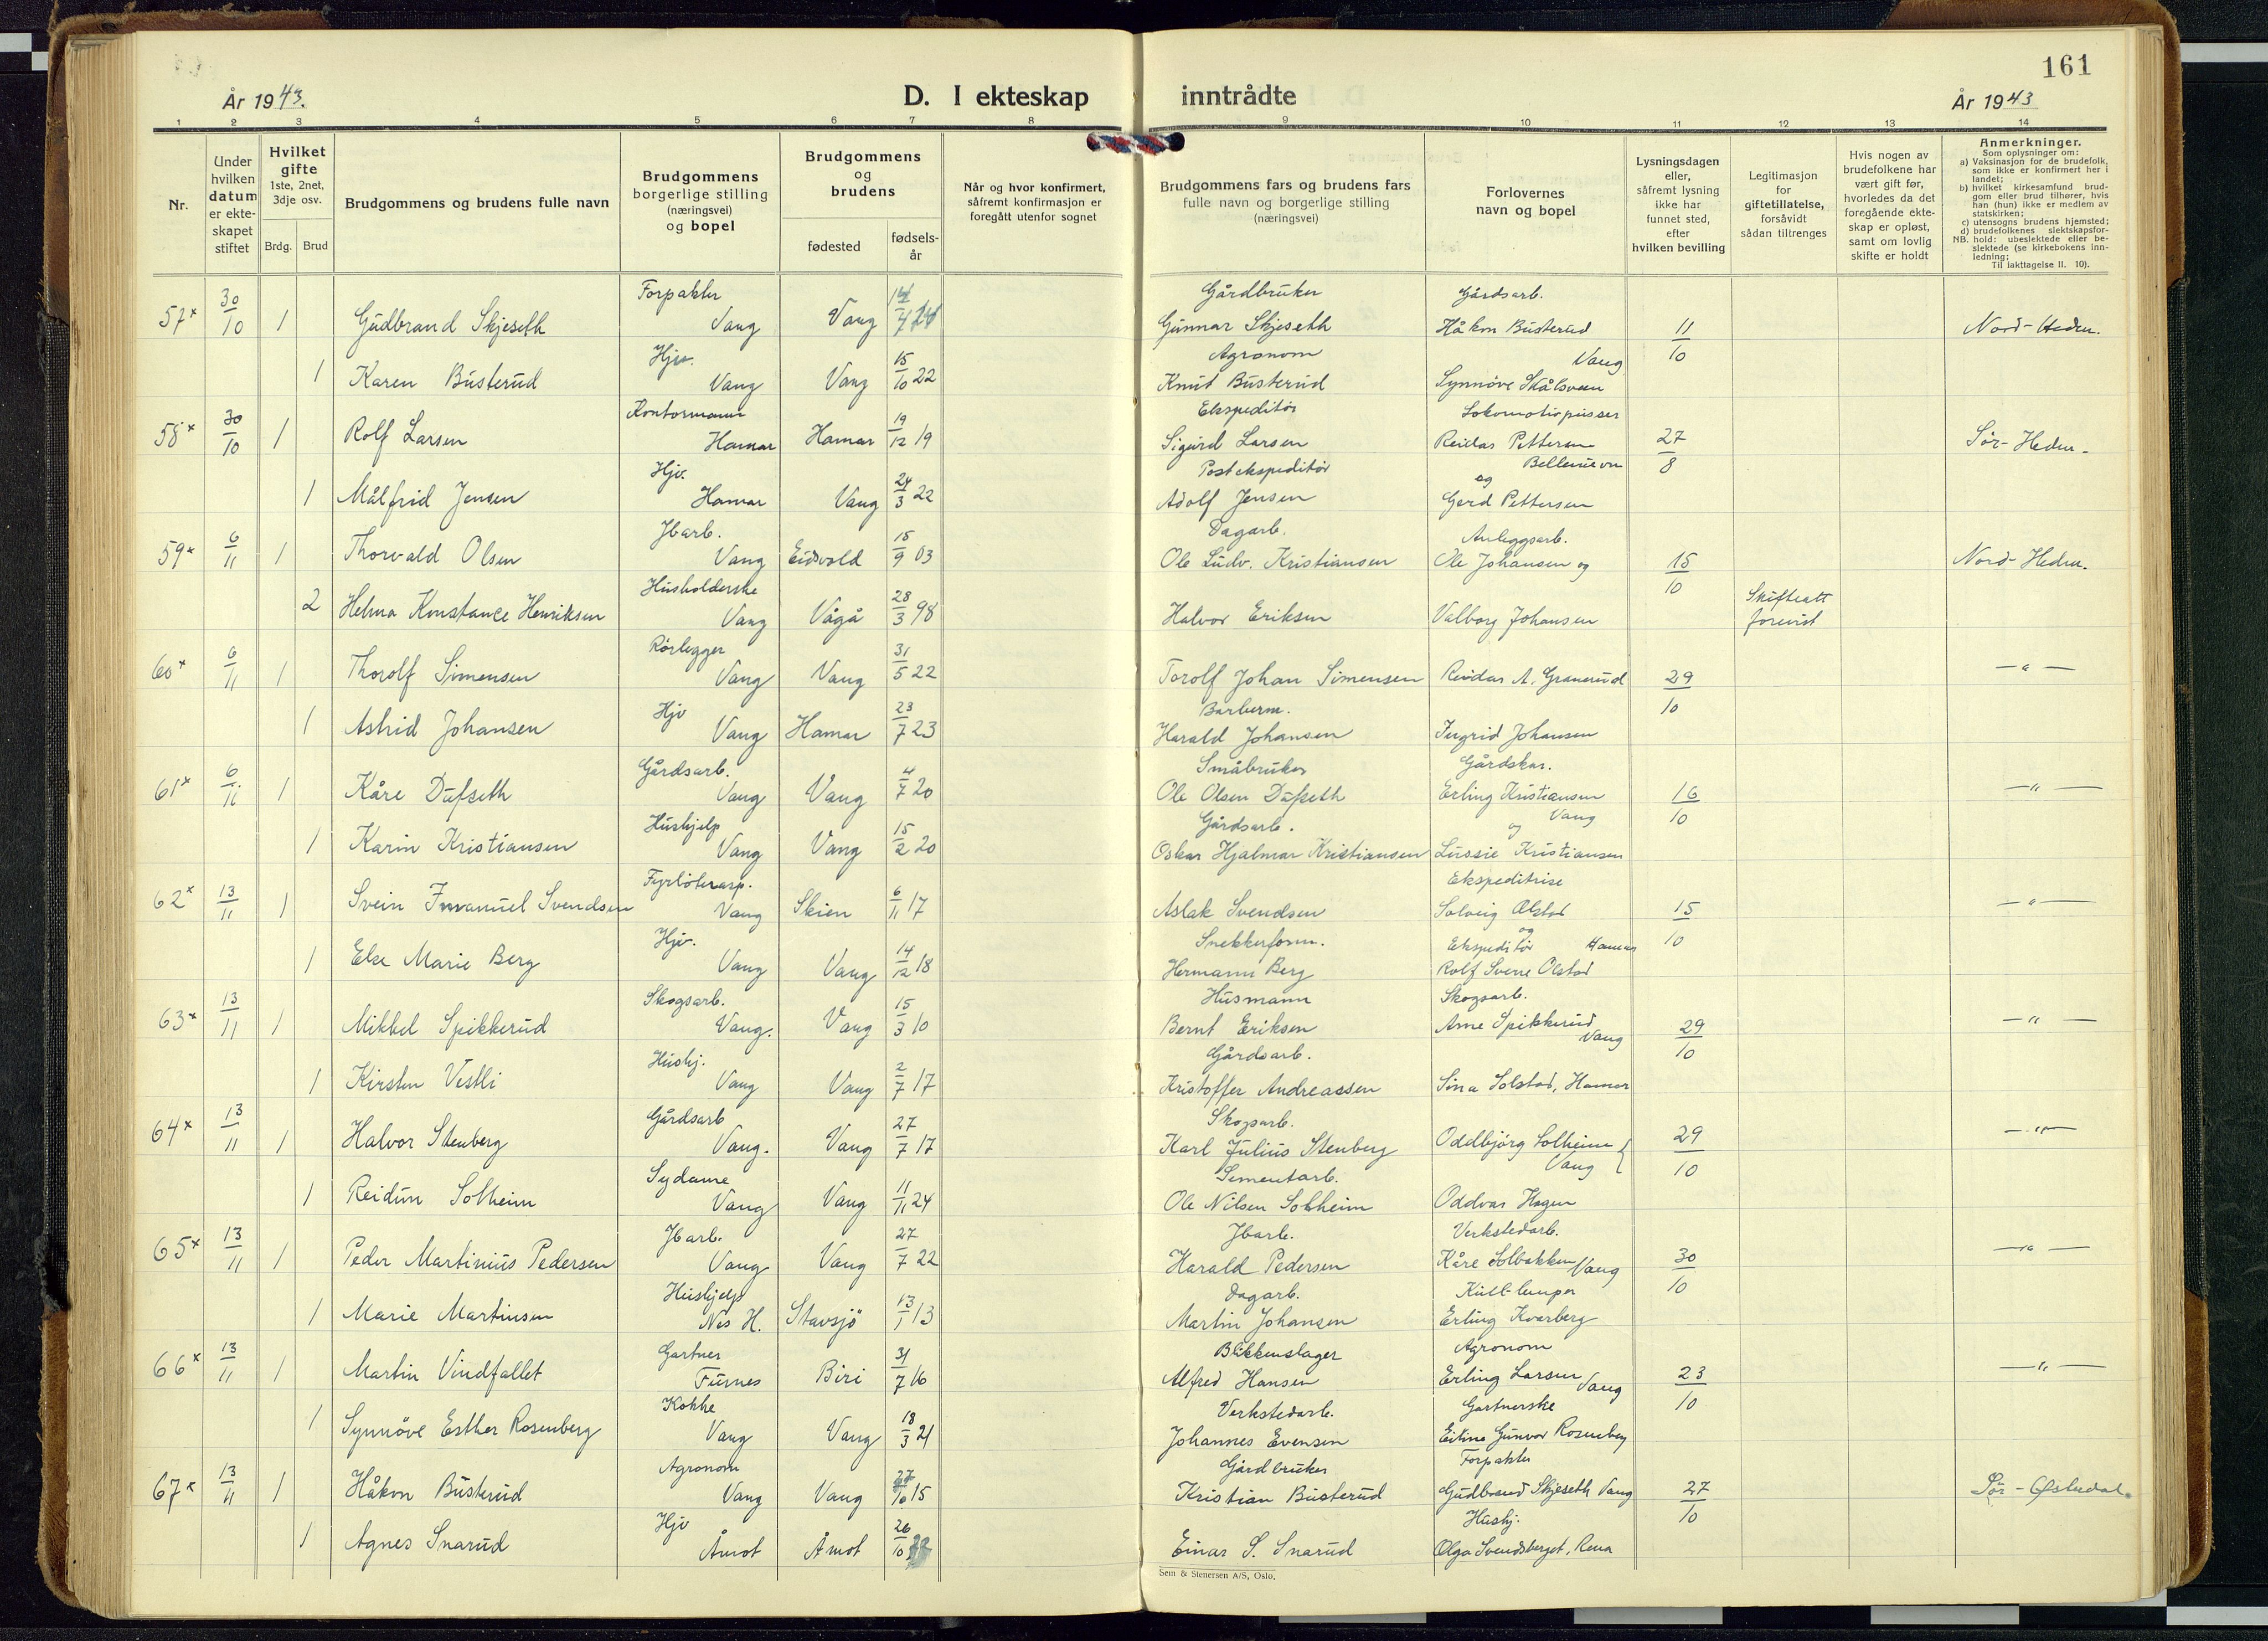 161
År 1943.
D. I ekteskap inntrådte
År 1943
1 2 3 4 5 6 7 8 9 10 11 12 13 14
Nr.
Under hvilken datum er ekteskapet stiftet
Hvilket gifte 1ste, 2net, 3dje osv.
Brdg. Brud
Brudgommens og brudens fulle navn
Brudgommens borgerlige stilling (næringsvei) og bopel
Brudgommens og brudens
fødested
fødsels-år
Når og hvor konfirmert, såfremt konfirmasjon er foregått utenfor sognet
Brudgommens fars og brudens fars fulle navn og borgerlige stilling (næringsvei)
Forlovernes navn og bopel
Lysningsdagen eller, såfremt lysning ikke har funnet sted, efter hvilken bevilling
Legitimasjon for giftetillatelse, forsåvidt sådan tiltrenges
Hvis nogen av brudefolkene har vært gift før, hvorledes da det foregående ekteskap er opløst, samt om lovlig skifte er holdt
Anmerkninger.
Som oplysninger om:
a) Vaksinasjon for de brudefolk, som ikke er konfirmert her i landet;
b) hvilket kirkesamfund brudgom eller brud tilhører, hvis han (hun) ikke er medlem av statskirken;
c) utensogns brudens hjemsted;
d) brudefolkenes slektskapsforhold: ubeslektede eller beslektede (se kirkebokens innledning;
NB.
Til iakttagelse II. 10).
57x 30/10 1 Gudbrand Skjeseth Forpakter Vang Vang 14/4 Gårdbruker Gunnar Skjeseth Gårdsarb. Håkon Busterud Vang 11/10 Nord-Hedm.
1 Karen Busterud Hjv. Vang Vang 15/10 22 Agronom Knut Busterud Synnöve Skålsveen
58x 30/10 1 Rolf Larsen Kontormann Hamar Hamar 19/12 19 Ekspeditör Sigurd Larsen Lokomotivpusser Reidar Pettersen Bellevuevn 27/8 Sör-Hedm.
1 Målfrid Jensen Hjv. Hamar Vang 24/3 22 Postekspeditör Adolf Jensen og Gerd Pettersen
59x 6/11 1 Thorvald Olsen Jbarb. Vang Eidsvold 15/9 03 Dagarb. Ole Ludv. Kristiansen Anleggsarb. Ole Johansen og 15/10 Nord-Hedm.
2 Helma Konstance Henriksen Husholderske Vang Vågå 28/3 98 Halvor Eriksen Valborg Johansen Skifteatt forevist
60x 6/11 1 Thorolf Simensen Rörlegger Vang Vang 31/5 22 Torolf Johan Simensen Reidar A. Granerud 29/10 — " —
1 Astrid Johansen Hjv Vang Hamar 23/7 23 Barberm. Harald Johansen Ingrid Johansen
61x 6/11 1 Kåre Dufseth Gårdsarb. Vang Vang 4/7 20 Småbruker Ole Olsen Dufseth Gårdskar. Erling Kristiansen Vang 16/10 — " —
1 Karin Kristiansen Hushjelp Vang Vang 15/2 20 Gårdsarb. Oskar Hjalmar Kristiansen og Lussie Kristiansen
62x 13/11 1 Svein Immanuel Svendsen Fyrböterasp. Vang Skien 6/11 17 Aslak Svendsen Ekspeditrise Solveig Olstad 15/10 — " —
1 Else Marie Berg Hjv. Vang Vang 14/12 18 Snekkerform. Hermann Berg og Ekspeditör Hamar Rolf Sverre Olstad
63x 13/11 1 Mikkel Spikkerud Skogsarb. Vang. Vang 15/3 10 Husmann Bernt Eriksen Skogsarb. Arne Spikkerud Vang 29/10 — " —
1 Kirsten Vestli Hushj. Vang Vang 2/7 17 Gårdsarb. Kristoffer Andreassen Sina Solstad, Hamar
64x 13/11 1 Halvor Stenberg Gårdsarb Vang. Vang 27/7 17 Skogsarb. Karl Julius Stenberg Oddbjörg Solheim Vang 29/10 — " —
1 Reidun Solheim Sydame Vang Vang 11/11 24 Sementarb. Ole Nilsen Solheim Oddvar Hagen
65x 13/11 1 Peder Martinius Pedersen Jbarb. Vang Vang 27/7 22 Jbarb. Harald Pedersen Verkstedarb. Kåre Solbakken Vang 30/10 — " —
1 Marie Martinsen Hushjelp Nes H. Stavsjö 13/1 13 Dagarb. Martin Johansen Kull-lemper Erling Kvarberg
66x 13/11 1 Martin Vindfallet Gartner Furnes Biri 31/7 16 Blikkenslager Alfred Hansen Agronom Erling Larsen Vang 23/10 — " —
1 Synnöve Esther Rosenberg Kokke Vang Vang 18/3 21 Verkstedarb. Johannes Evensen Gartnerske Gunvor Rosenberg
67x 13/11 1 Håkon Busterud Agronom Vang Vang 27/10 15 Gårdbruker Kristian Busterud Forpakter Gudbrand Skjeseth Vang 27/10 Sör-Østerdal.
1 Agnes Snarud Hjv Åmot Åmot 26/10 Einar S. Snarud Hushj. Olga Svendsberget, Rena
Sem & Stenersen A/S, Oslo.